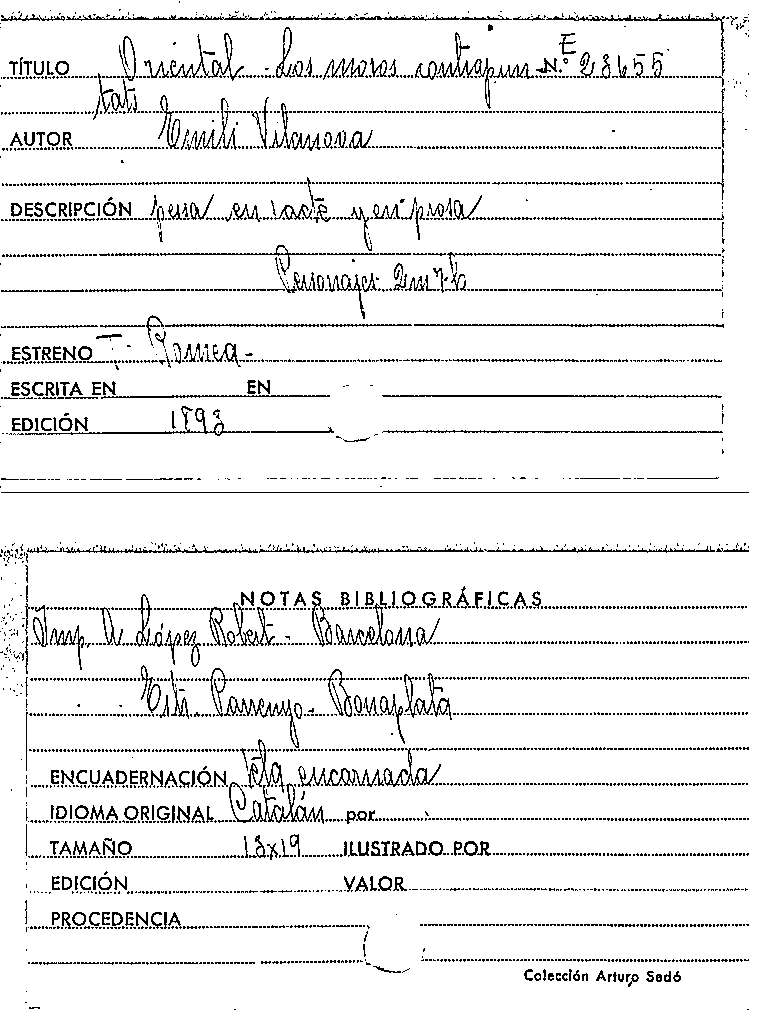 TÍTULO Oriental - Los moros contrapun- N.º E 23655
tats
AUTOR Emili Vilanova
DESCRIPCIÓN pesa en 1 acte y en prosa
Personajes 2m 7h
ESTRENO T. Romea -
ESCRITA EN EN
EDICIÓN 1893
NOTAS BIBLIOGRÁFICAS
Imp. A. López Robert - Barcelona
Estr. Parrenyo - Bonaplata
ENCUADERNACIÓN tela encarnada
IDIOMA ORIGINAL Catalán por
TAMAÑO 13x19 ILUSTRADO POR
EDICIÓN VALOR
PROCEDENCIA
Colección Arturo Sedó